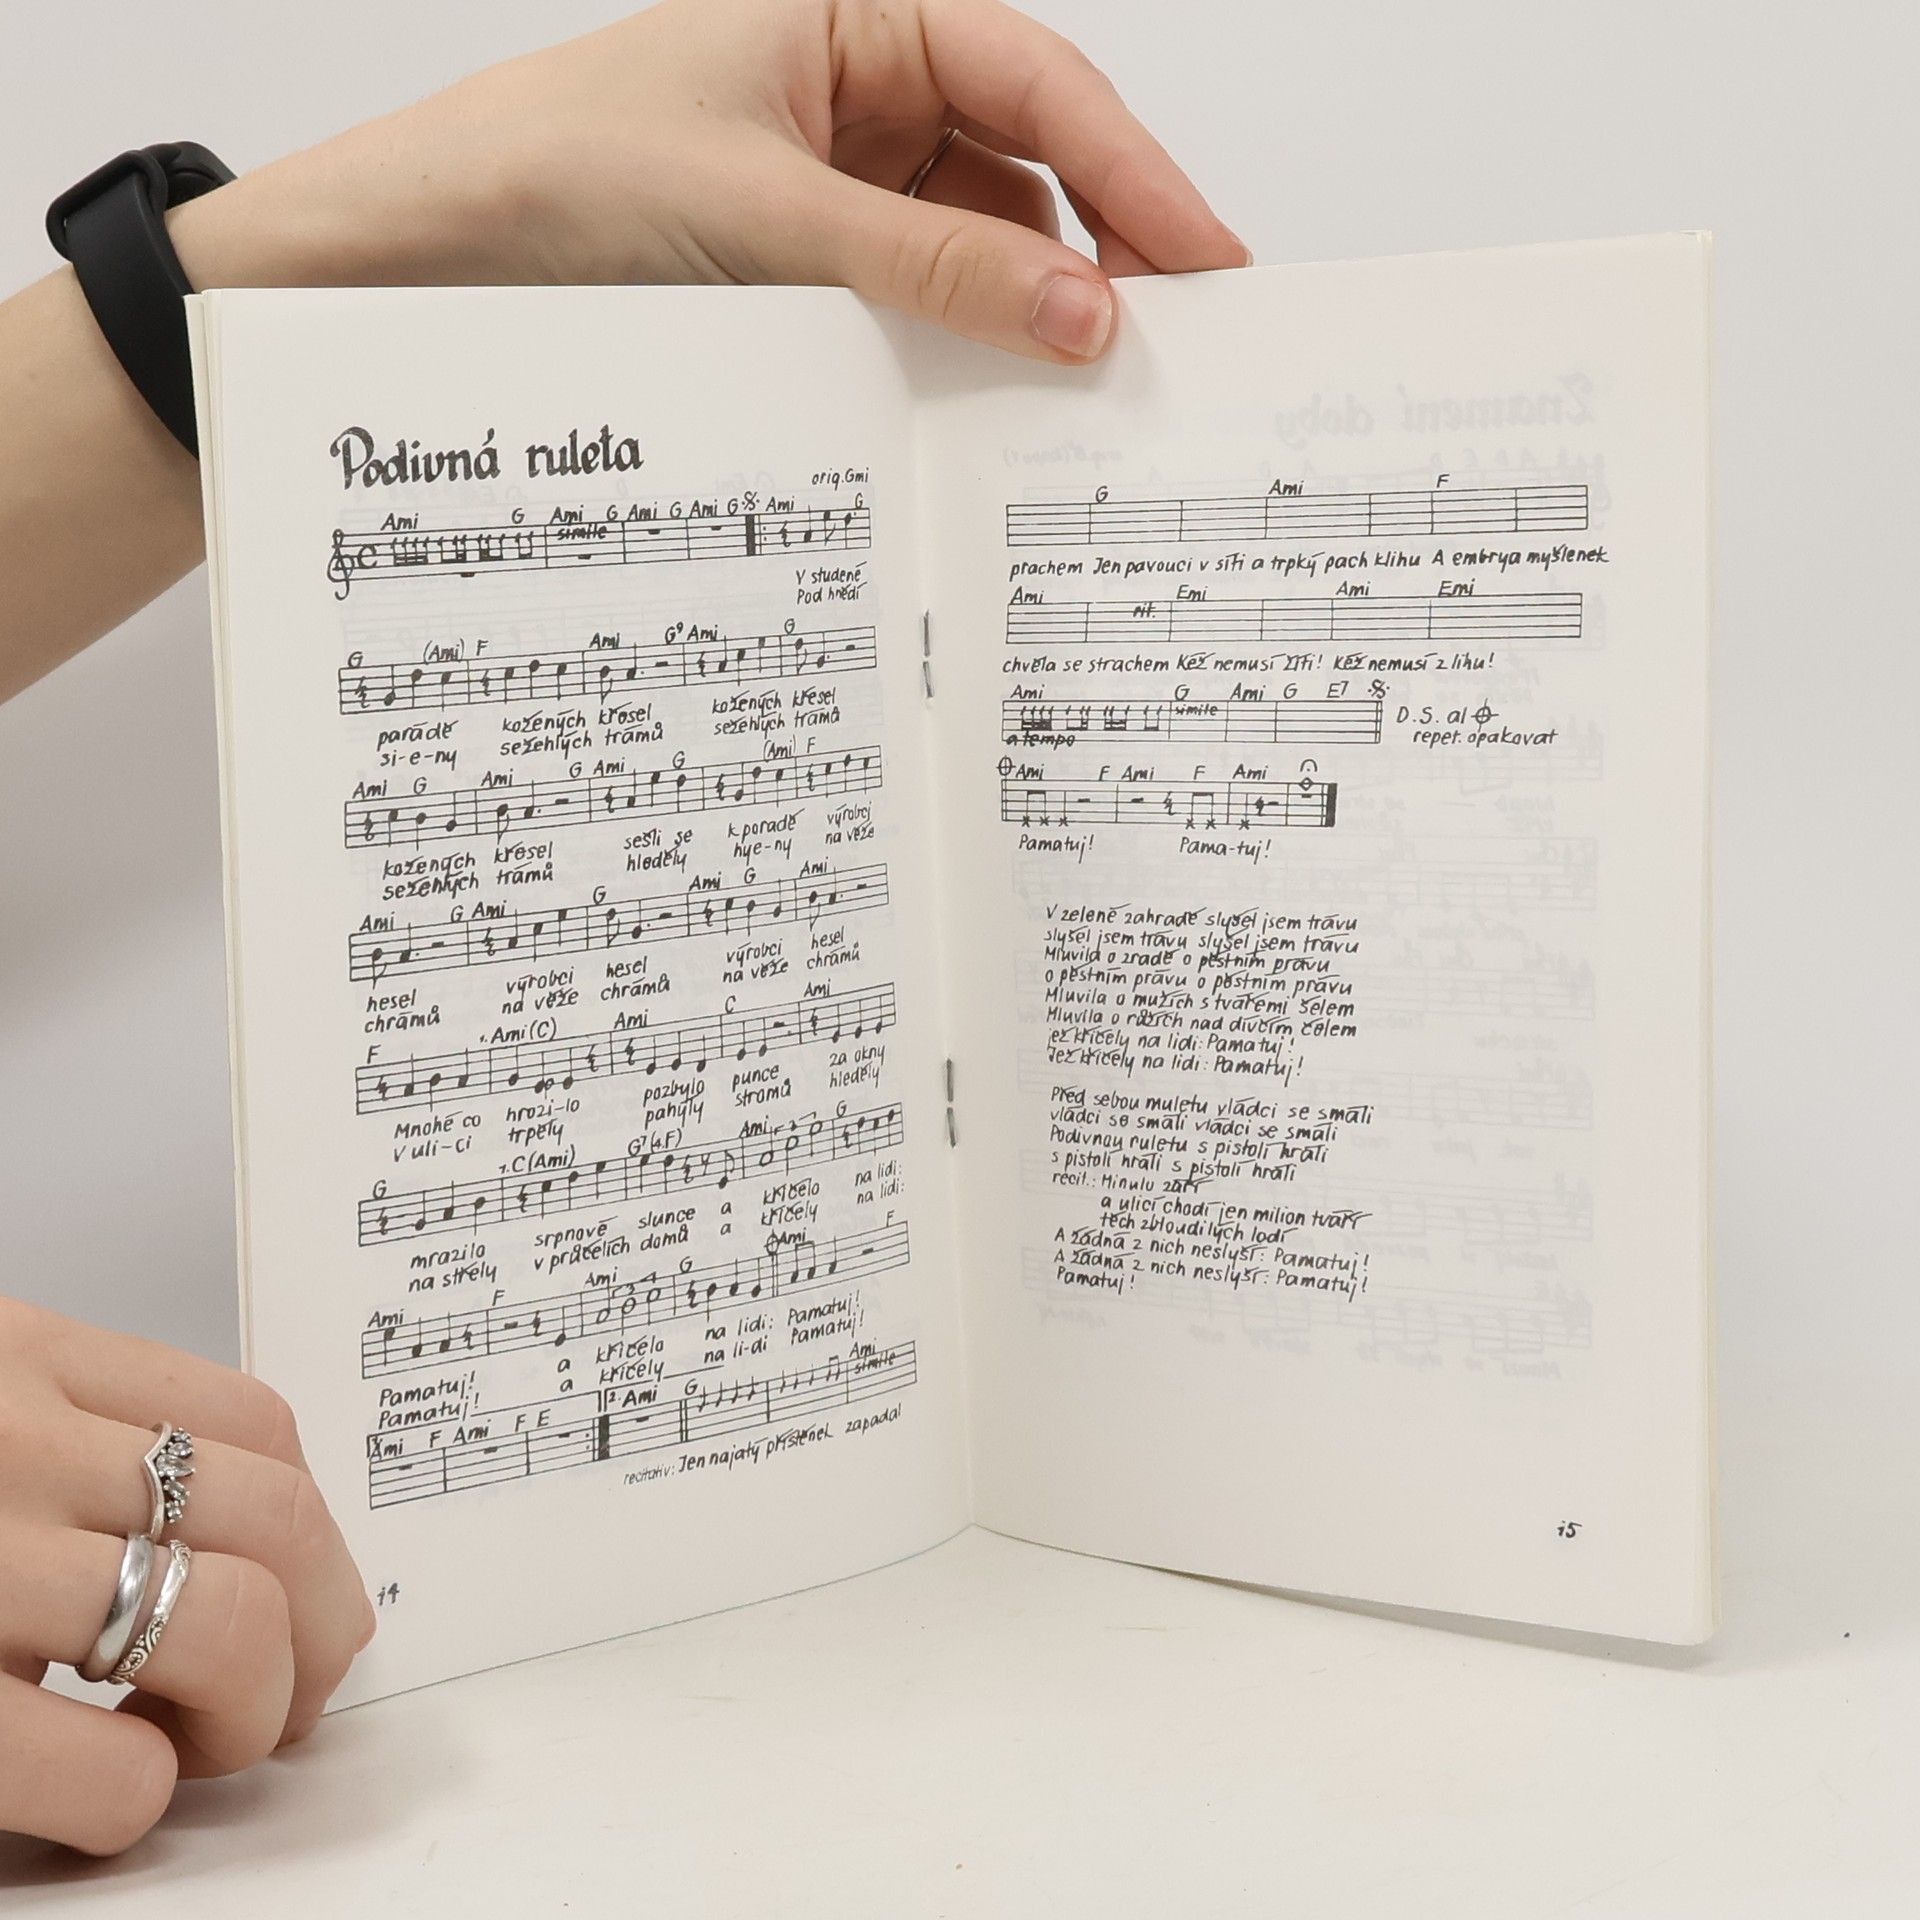 Podivná ruleta
orig. Gmi
Ami G Ami G Ami G Ami G Ami G
simile
V studené
Pod hnědí
G (Ami) F Ami G9 Ami G
parádě kožených křesel kožených křesel
si-e-ny sežehlých trámů sežehlých trámů
Ami G Ami G Ami G (Ami) F
kožených křesel sešli se k poradě výrobci
sežehlých trámů hleděly hye-ny na věže
Ami G Ami G Ami G Ami
hesel výrobci hesel výrobci hesel
chrámů na věže chrámů na věže chrámů
F 1. Ami (C) Ami C Ami
Mnohé co hrozi-lo pozbylo punce za okny
V uli-ci trpěly pahýly stromů hleděly
G 1. C (Ami) G7 (4.F) Ami 3 G
mrazilo srpnové slunce a křičelo na lidi:
na střely v průčelích domů a křičely na lidi:
Ami F Ami 3 G Ami F
Pamatuj! a křičelo na lidi: Pamatuj!
Pamatuj! a křičely na li-di Pamatuj!
1. Ami F Ami F E 2. Ami G Ami
simile
recitativ: Jen najatý přístěnek zapadal
14
G Ami F
prachem Jen pavouci v síti a trpký pach klihu A embrya myšlenek
Ami rit. Emi Ami Emi
chvěla se strachem Kéž nemusí žíti! Kéž nemusí z lihu!
Ami G Ami G E7
simile
a tempo
D.S. al
repet. opakovat
Ami F Ami F Ami
Pamatuj! Pama-tuj!
V zelené zahradě slyšel jsem trávu
slyšel jsem trávu slyšel jsem trávu
Mluvila o zradě o pěstním právu
o pěstním právu o pěstním právu
Mluvila o mužích s tvářemi šelem
Mluvila o růžích nad dívčím čelem
jež křičely na lidi: Pamatuj!
Jež křičely na lidi: Pamatuj!
Před sebou muletu vládci se smáli
vládci se smáli vládci se smáli
Podivnou ruletu s pistolí hráli
s pistolí hráli s pistolí hráli
recit.: Minulo září
a ulicí chodí jen milion tváří
těch zbloudilých lodí
A žádná z nich neslyší: Pamatuj!
A žádná z nich neslyší: Pamatuj!
Pamatuj!
15